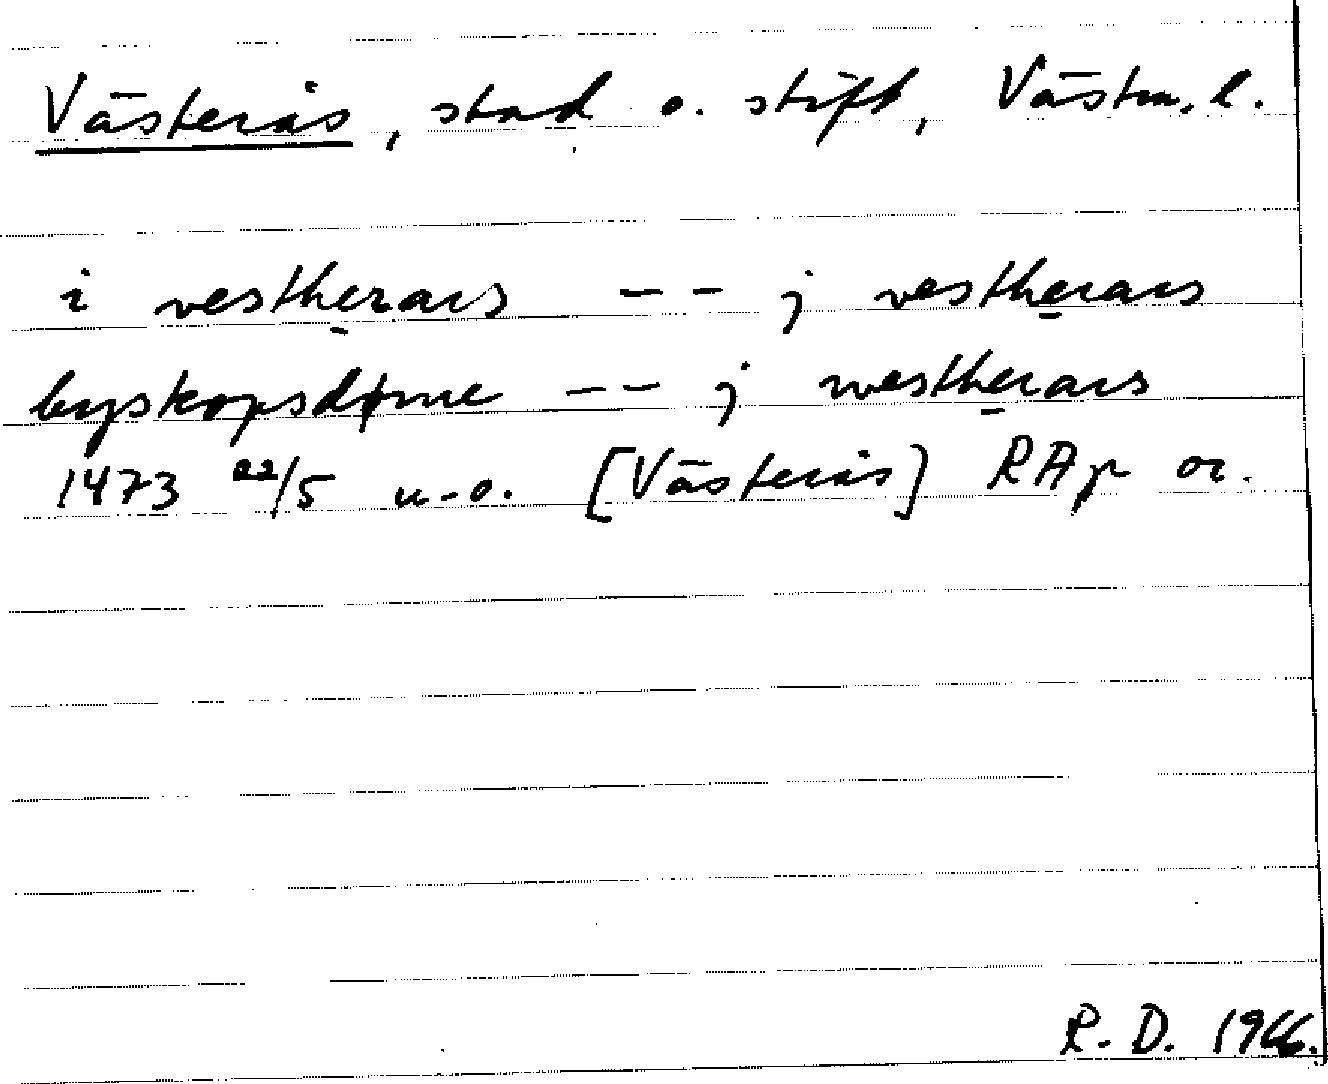 Västerås, stad o. stift, Västm. l.
i vestherars -- j vestherars
byskopsdøme -- j westherars
1473 22/5 u.o. [Västerås] RAp or.
R. D. 1966.